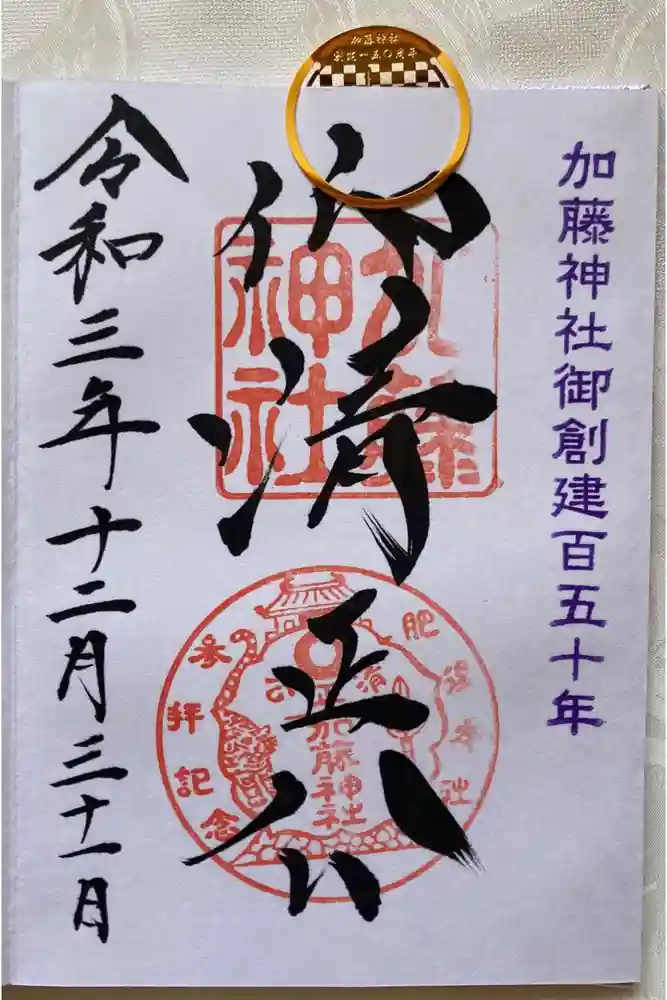 加藤神社
創建一五〇周年
加藤神社御創建百五十年
仰清正公
加藤
神社
肥後本社
加藤神社
参拝記念
令和三年十二月三十一日